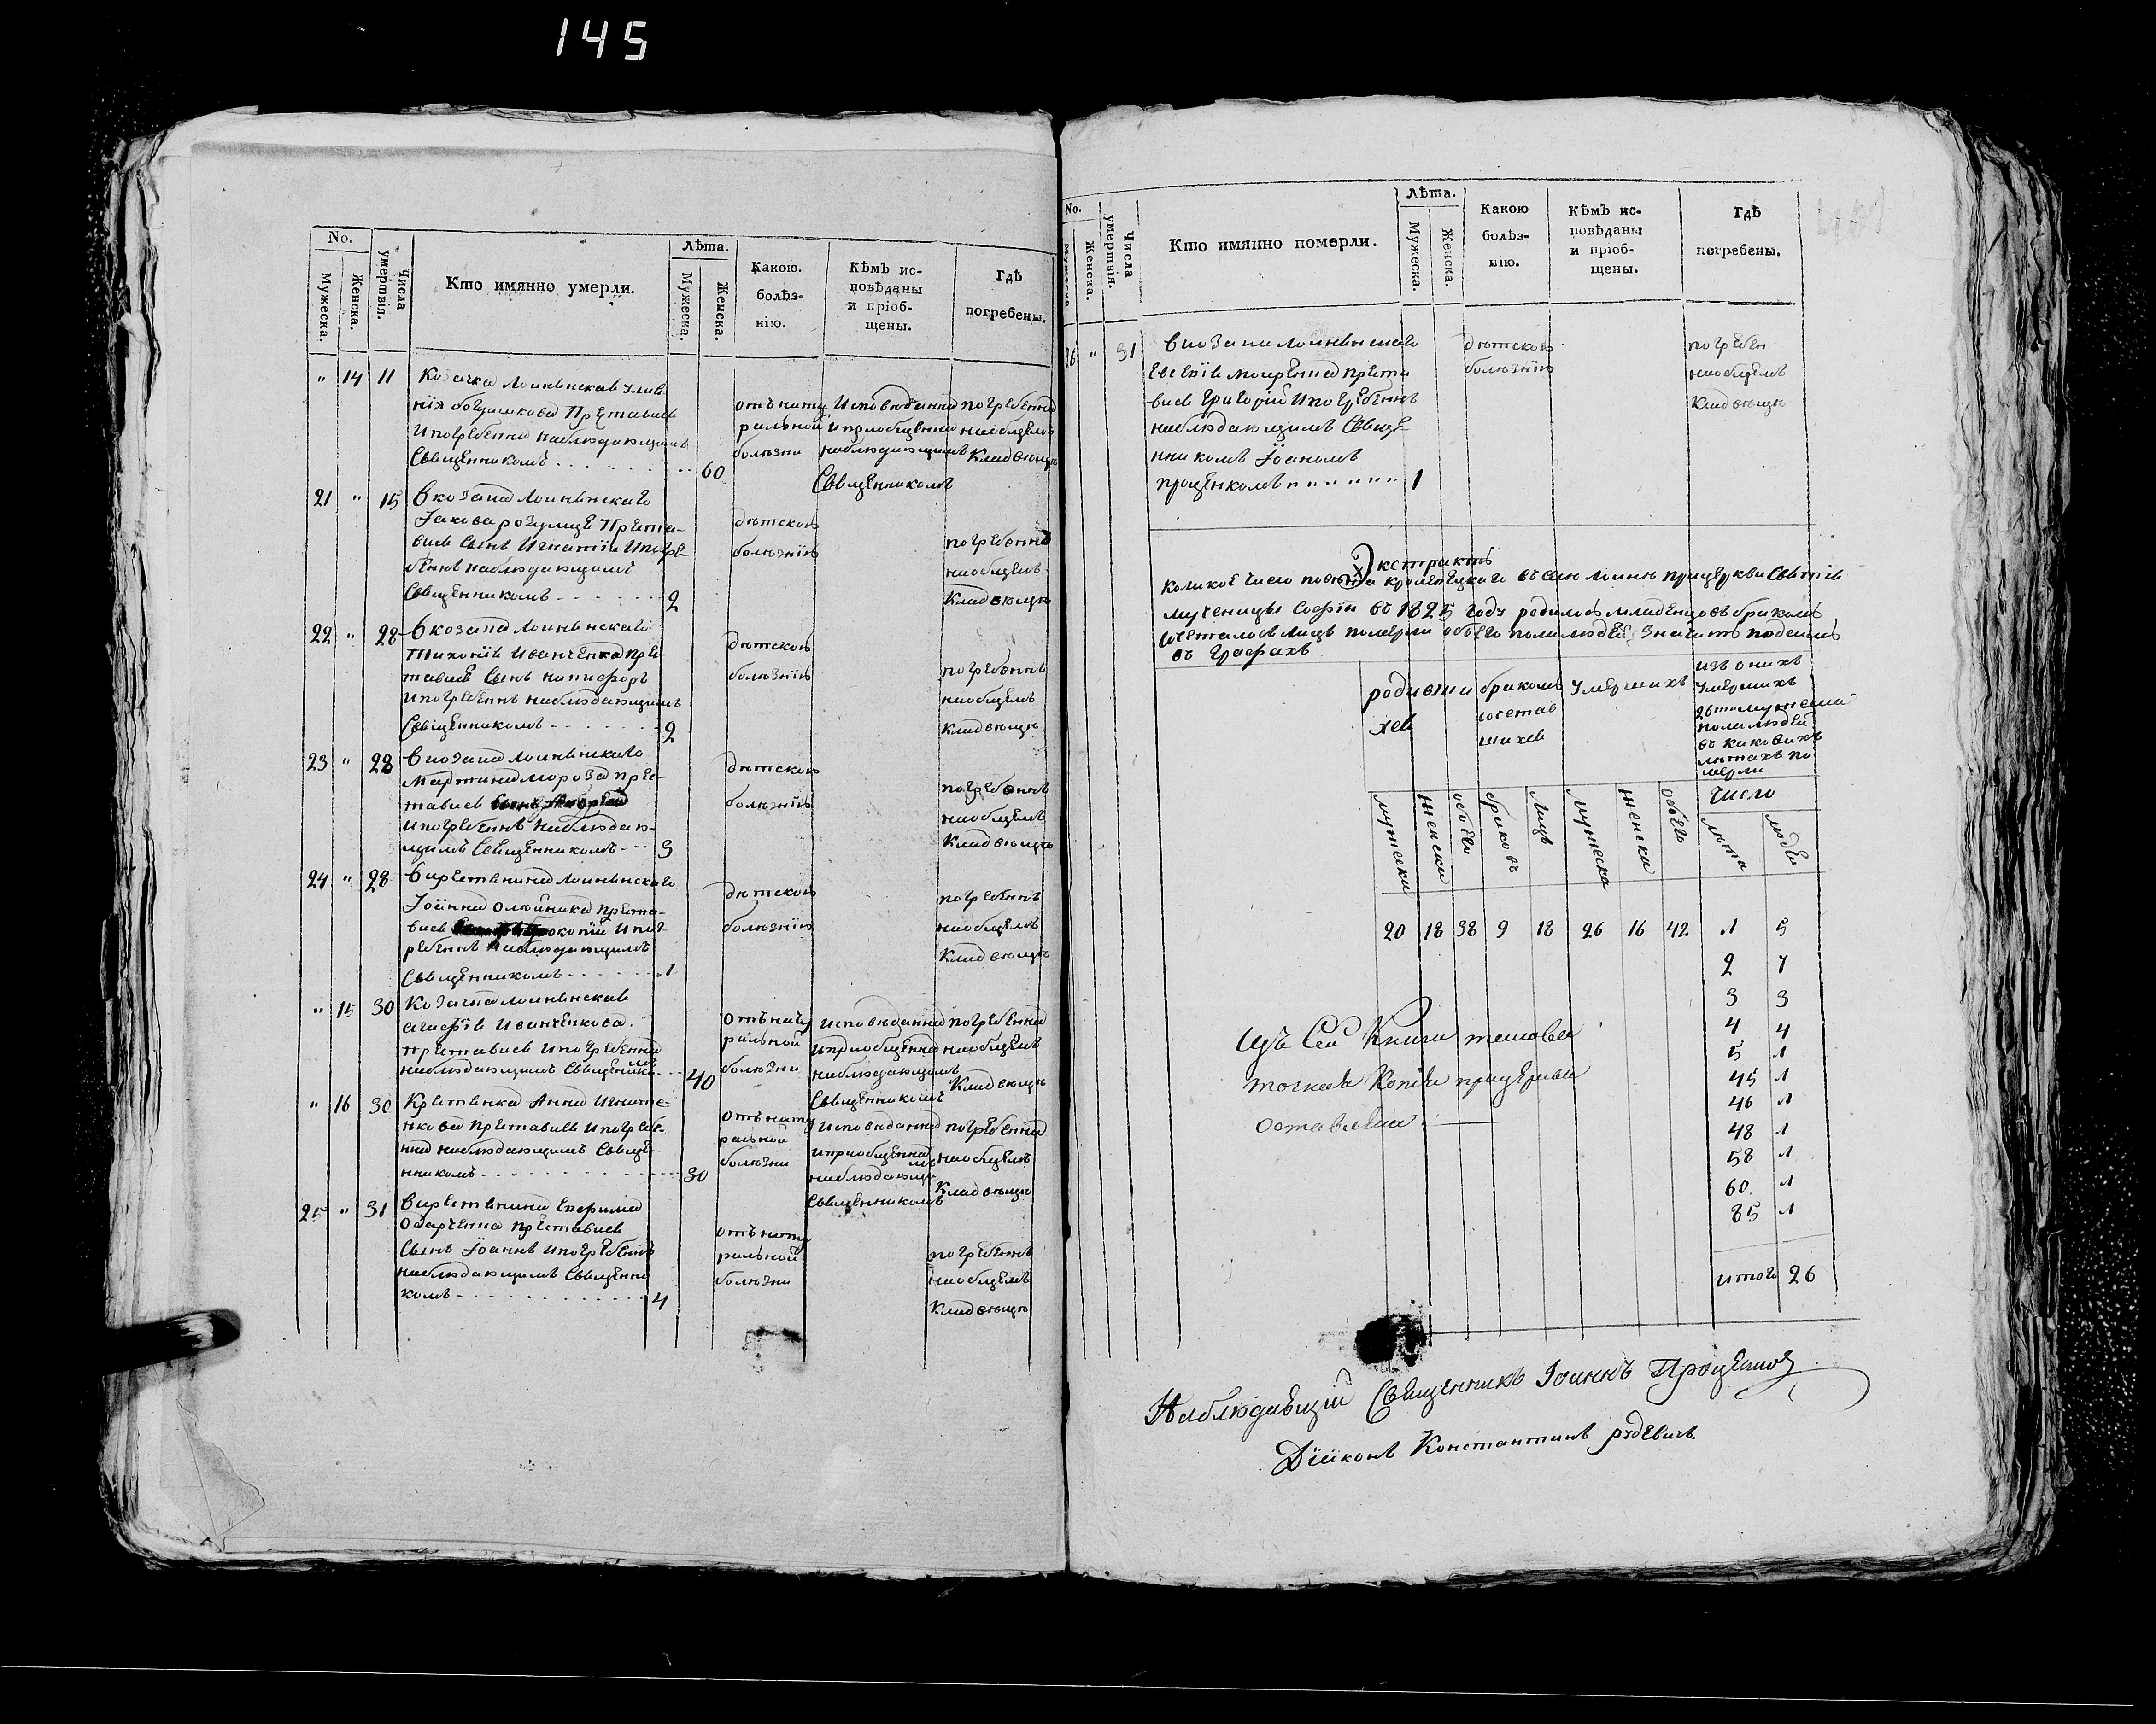 145
No.
Мужеска.
Женска.
Числа умертвія.
Кто имянно умерли.
Лѣта.
Мужеска.
Женска.
Какою.
болѣз-
нію.
Кѣмъ ис-
повѣданы
и пріоб-
щены.
Гдѣ
погребены.
" 14 11
Козачка
Преставися
и погребенна наблюдающимъ
Священникомъ 60
отъ нату
ральной
болѣзни
Исповѣданна
и приобщенна
наблюдающимъ
Священникомъ
погребенна
на общемъ
Кладвѣщѣ
21 " 15
В козака
Іакова Преста-
вись Сынъ Игнатій и погре-
бенъ наблюдающимъ
Священникомъ 2
дѣтскою
болѣзнію
погребеннъ
на общемъ
Кладвѣщѣ
22 " 28
В козака
Иванченка пре-
тавися Сынъ
и погребеннъ наблюдающимъ
Священникомъ 2
дѣтскою
болѣзнію
погребеннъ
на общемъ
Кладвѣщѣ
23 " 28
В козака
Мартина Мороза прес-
тавись
и погребеннъ наблюдаю-
щимъ Священникомъ 3
дѣтскою
болѣзнію
погребеннъ
на общемъ
Кладвѣщѣ
24 " 28
Іоанна Олейника преста-
вись и пог-
ребеннъ наблюдающимъ
Священникомъ 1
дѣтскою
болѣзнію
погребеннъ
на общемъ
Кладвѣщѣ
" 15 30
Козачка
Иванченкова
преставись и погребенна
наблюдающимъ Священникомъ 40
отъ нату
ральной
болѣзни
исповѣданна
и приобщенна
наблюдающимъ
Священникомъ
погребенна
на общемъ
Кладвѣщѣ
" 16 30
Анна Игнате-
нкова преставись и погребе-
нна наблюдающимъ Свяще-
нникомъ 30
отъ нату
ральной
болѣзни
исповѣданна
и приобщенна
наблюдающимъ
Священникомъ
погребенна
на общемъ
Кладвѣщѣ
25 " 31
преставись
Сынъ Іоаннъ и погребеннъ
наблюдающимъ Священни
комъ 4
отъ нату
ральной
болѣзни
погребеннъ
на общемъ
Кладвѣщѣ
No.
Мужеска.
Женска.
Числа умертвія.
Кто имянно померли.
Лѣта.
Мужеска.
Женска.
Какою
болѣз-
нію.
Кѣмъ ис-
повѣданы
и пріоб-
щены.
Гдѣ
погребены.
26 " 31
В козака
преста
вись Григорій и погребеннъ
наблюдающимъ Свяще-
нникомъ Іоаномъ
Проценкомъ 1
дѣтскою
болѣзнію
погребен
на общемъ
Кладвѣщѣ
Экстрактъ
Мученицы Софіи въ 1825 году родилось младенцовъ бракомъ
сочеталось лицъ померли обоего пола людей значитъ подъ симъ
въ графахъ
родивши
хся
бракомъ
сочетав
шихся
умершихъ
изъ онихъ
умершихъ
пола людей
въ каковихъ
лѣтахъ по
мерли
мужеска
женска
обоего
браковъ
лицъ
мужеска
женска
обоего
число
лѣта
людей
20 18 38 9 18 26 16 42
1 5
2 7
3 3
4 4
5 1
45 1
46 1
48 1
58 1
60 1
85 1
итого 26
Изъ Сей Книги таковая
точная Копія при церкви
оставлена
Наблюдающій Священникъ Іоаннъ Проценко
Діаконъ Константинъ Рудевичъ